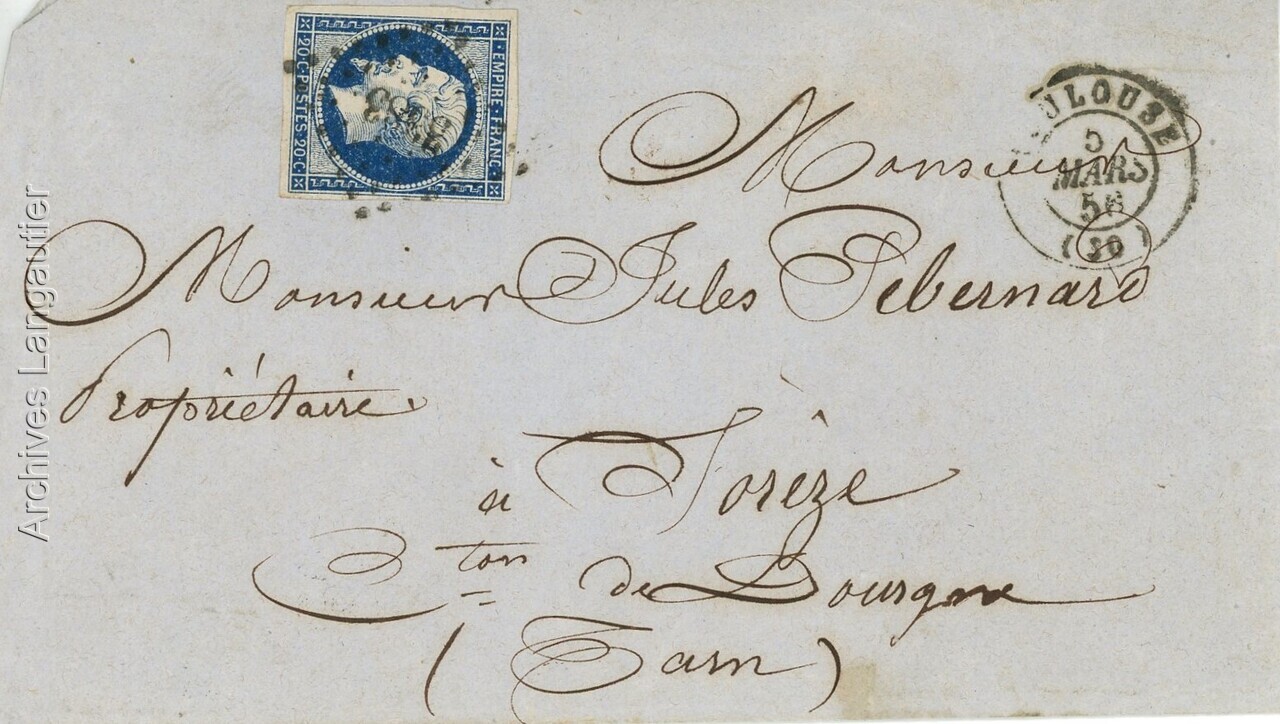 EMPIRE·FRANC·
20·C·POSTES·20·C·
TOULOUSE
5
MARS
56
(30)
Monsieur
Monsieur Jules Pebernard
Propriétaire
à Sorèze
Cton de Dourgne
(Tarn)
Archives Langautier